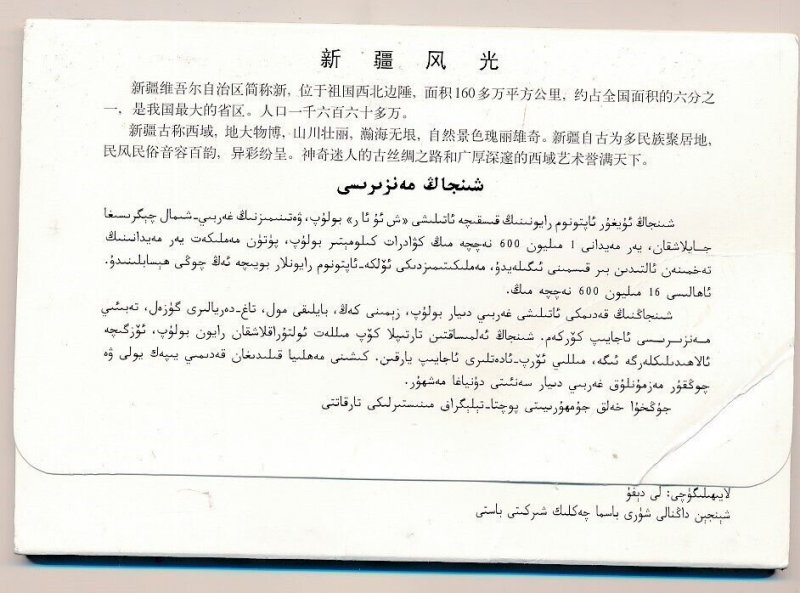 新疆风光
新疆维吾尔自治区简称新，位于祖国西北边陲，面积160多万平方公里，约占全国面积的六分之
一，是我国最大的省区。人口一千六百六十多万。
新疆古称西域，地大物博，山川壮丽，瀚海无垠，自然景色瑰丽雄奇。新疆自古为多民族聚居地，
民风民俗音容百韵，异彩纷呈。神奇迷人的古丝绸之路和广厚深邃的西域艺术誉满天下。
شىنجاڭ مەنزىرىسى
شىنجاڭ ئۇيغۇر ئاپتونوم رايونىنىڭ قىسقىچە ئاتىلىشى «ش ئۇ ئا ر» بولۇپ، ۋەتىنىمىزنىڭ غەربىي-شىمال چېگرىسىغا
جايلاشقان، يەر مەيدانى 1 مىليون 600 نەچچە مىڭ كۋادرات كىلومېتىر بولۇپ، پۈتۈن مەملىكەت يەر مەيدانىنىڭ
تەخمىنەن ئالتىدىن بىر قىسمىنى ئىگىلەيدۇ، مەملىكىتىمىزدىكى ئۆلكە-ئاپتونوم رايونلار بويىچە ئەڭ چوڭى ھېسابلىنىدۇ.
ئاھالىسى 16 مىليون 600 نەچچە مىڭ.
شىنجاڭنىڭ قەدىمكى ئاتىلىشى غەربىي دىيار بولۇپ، زېمىنى كەڭ، بايلىقى مول، تاغ-دەريالىرى گۈزەل، تەبىئىي
مەنزىرىسى ئاجايىپ كۆركەم. شىنجاڭ ئەلمىساقتىن تارتىپلا كۆپ مىللەت ئولتۇراقلاشقان رايون بولۇپ، ئۆزگىچە
ئالاھىدىلىكلەرگە ئىگە، مىللىي ئۆرپ-ئادەتلىرى ئاجايىپ يارقىن. كىشىنى مەھلىيا قىلىدىغان قەدىمىي يىپەك يولى ۋە
چوڭقۇر مەزمۇنلۇق غەربىي دىيار سەنئىتى دۇنياغا مەشھۇر.
جۇڭخۇا خەلق جۇمھۇرىيىتى پوچتا-تېلېگراف مىنىستىرلىكى تارقاتتى
لايىھىلىگۈچى: لى دېفۇ
شېنجېن داڭنالى شۈرى باسما چەكلىك شىركىتى باستى